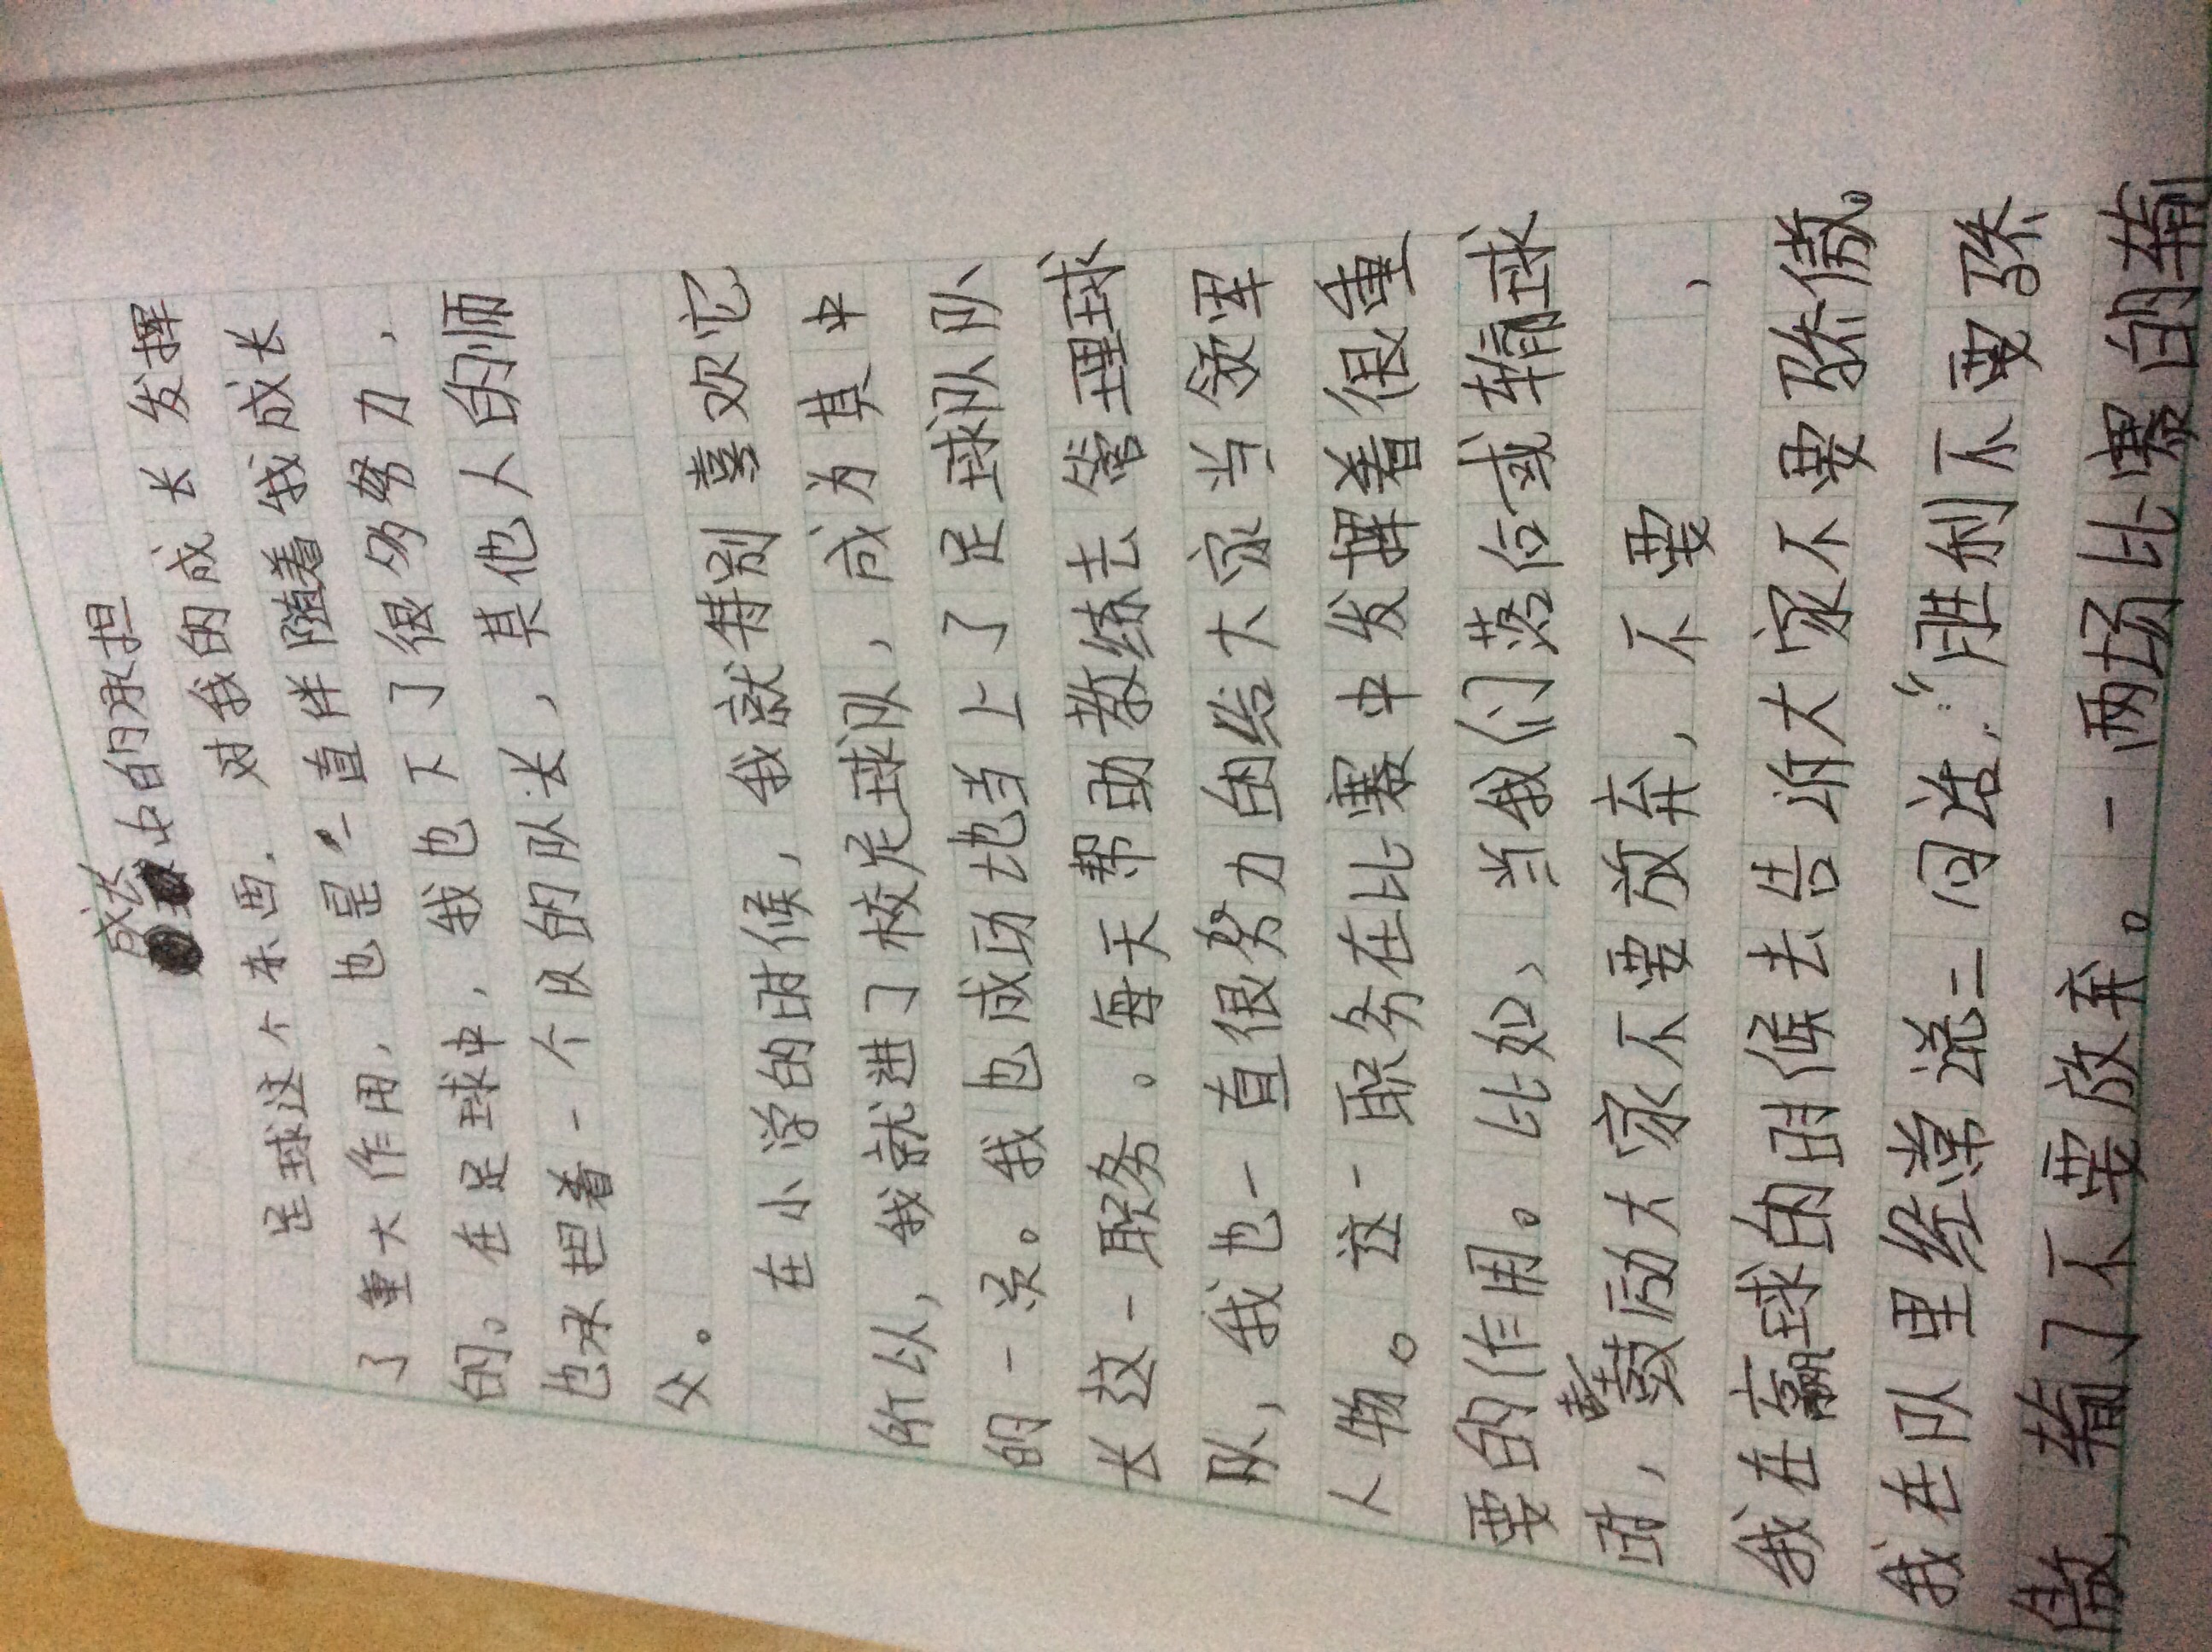 成长中的承担
足球这个东西.对我的成长发挥
了重大作用,也是一直伴随着我成长
的。在足球中,我也下了很多努力,
也承担着一个队的队长,其他人的师
父。
在小学的时候,我就特别喜欢它
所以,我就进了校足球队,成为其中
的一员。我也成功地当上了足球队队
长这一职务。每天帮助教练去管理球
队,我也一直很努力的给大家当领军
人物。这一职务在比赛中发挥着很重
要的作用。比如、当我们落后或输球
时,鼓励大家不要放弃,不要
我在赢球的时候去告诉大家不要骄傲。
我在队里经常说二句话:“胜利不要骄
傲,输了不要放弃。一两场比赛的输